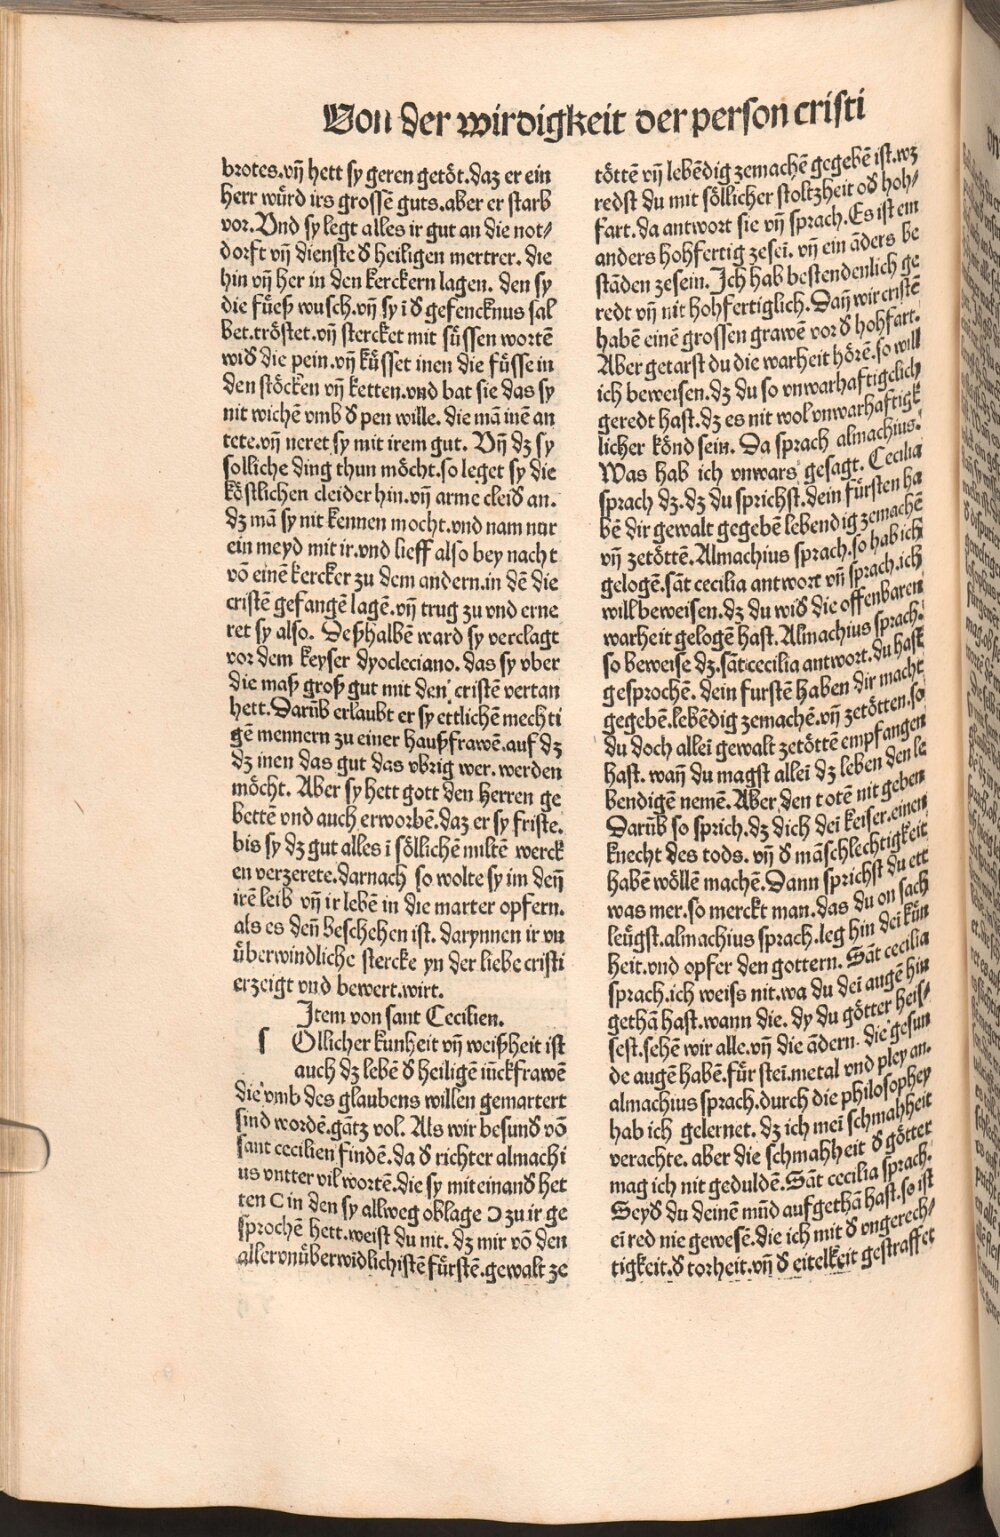 Von der wirdigkeit der person cristi
brotes.vñ hett sy geren getöt.daz er ein
herr würd irs grossē guts.aber er starb
vor.Vnd sy legt alles ir gut an die not⸗
dorft vñ dienste d̕ heiligen mertrer. die
hin vñ her in den kerckern lagen. den sy
die füeß wusch.vñ sy ī d̕ gefencknus sal
bet.tröstet.vñ stercket mit süssen wortē
wid̕ die pein.vñ küsset inen die füsse in
den stöcken vñ ketten.vnd bat sie das sy
nit wichē vmb d̕ pen wille. die mā inē an
tete.vñ neret sy mit irem gut. Vñ dz sy
solliche ding thun möcht.so leget sy die
köstlichen cleider hin.vñ arme cleid̕ an.
dz mā sy nit kennen mocht.vnd nam nur
ein meyd mit ir.vnd lieff also bey nacht
vō einē kercker zu dem andern.in dē die
cristē gefangē lagē.vñ trug zu vnd erne
ret sy also. Deßhalbē ward sy verclagt
vor dem keyser dyocleciano. das sy vber
die maß groß gut mit den cristē vertan
hett.Darūb erlaubt er sy ettlichē mechti
gē mennern zu einer haußfrawē.auf dz
dz inen das gut das vbrig wer. werden
möcht. Aber sy hett gott den herren ge
bettē vnd auch erworbē.daz er sy friste.
bis sy dz gut alles ī söllichē miltē werck
en verzerete.darnach so wolte sy im deñ
irē leib vñ ir lebē in die marter opfern.
als es deñ beschehen ist. darynnen ir vn
überwindliche stercke yn der liebe cristi
erzeigt vnd bewert.wirt.
Item von sant Cecilien.
s Ollicher kunheit vñ weißheit ist
auch dz lebē d̕ heiligē iūckfrawē
die vmb des glaubens willen gemartert
sind wordē.gātz vol. Als wir besund̕ vō
sant cecilien findē.da d̕ richter almachi
us vntter vil wortē.die sy miteinand̕ het
ten C in den sy allweg oblage Ɔ zu ir ge
sprochē hett.weist du nit. dz mir vō den
allervnüberwīdlichistē fürstē.gewalt ze
töttē vñ lebēdig zemachē gegebē ist.wz
redst du mit söllicher stoltzheit od̕ hoh⸗
fart.da antwort sie vñ sprach.Es ist ein
anders hohfertig zeseī. vñ ein āders be
stāden zesein. Ich hab bestendenlich ge
redt vñ nit hohfertiglich.Dañ wir cristē
habē einē grossen grawē vor d̕ hohfart.
Aber getarst du die warheit hörē.so will
ich beweisen.dz du so vnwarhaftigclich
geredt hast.dz es nit wol vnwarhaftigk
licher könd sein. Da sprach almachius.
Was hab ich vnwars gesagt. Cecilia
sprach dz.dz du sprichst.dein fürsten ha
bē dir gewalt gegebē lebendig zemachē
vñ zetöttē.Almachius sprach.so hab ich
gelogē.sāt cecilia antwort vñ sprach.ich
will beweisen.dz du wid̕ die offenbaren
warheit gelogē hast.Almachius sprach.
so beweise dz.sāt cecilia antwort.du hast
gesprochē. dein furstē haben dir macht
gegebē.lebēdig zemachē.vñ zetötten.so
du doch alleī gewalt zetöttē empfangen
hast. wañ du magst alleī dz leben den le
bendigē nemē.Aber den totē nit geben
Darūb so sprich.dz dich deī keiser.einen
knecht des tods. vñ d̕ māschlechtigkeit
habē wöllē machē.Dann sprichst du ett
was mer.so merckt man.das du on sach
leügst.almachius sprach.leg hin deī kün
heit.vnd opfer den gottern. Sāt cecilia
sprach.ich weiss nit.wa du deī augē hin
gethā hast.wann die. dy du götter heis⸗
sest.sehē wir alle.vñ die ādern. die gesun
de augē habē.für steī.metal vnd pley an.
almachius sprach.durch die philosophey
hab ich gelernet. dz ich meī schmahheit
verachte. aber die schmahheit d̕ götter
mag ich nit geduldē.Sāt cecilia sprach.
Seyd̕ du deinē mūd aufgethā hast.so ist
eī red nie gewesē.die ich mit d̕ vngerech⸗
tigkeit.d̕ torheit.vñ d̕ eitelkeit gestraffet